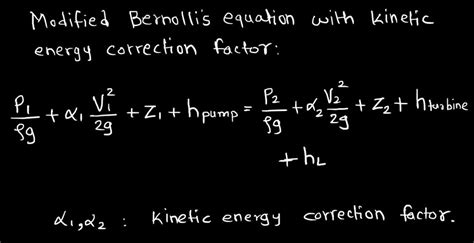 Modified Bernolli's equation with kinetic
energy correction factor:
P₁/ρg + α₁ V₁²/2g + Z₁ + h pump = P₂/ρg + α₂ V₂²/2g + Z₂ + h turbine
+ h_L
α₁, α₂ : kinetic energy correction factor.